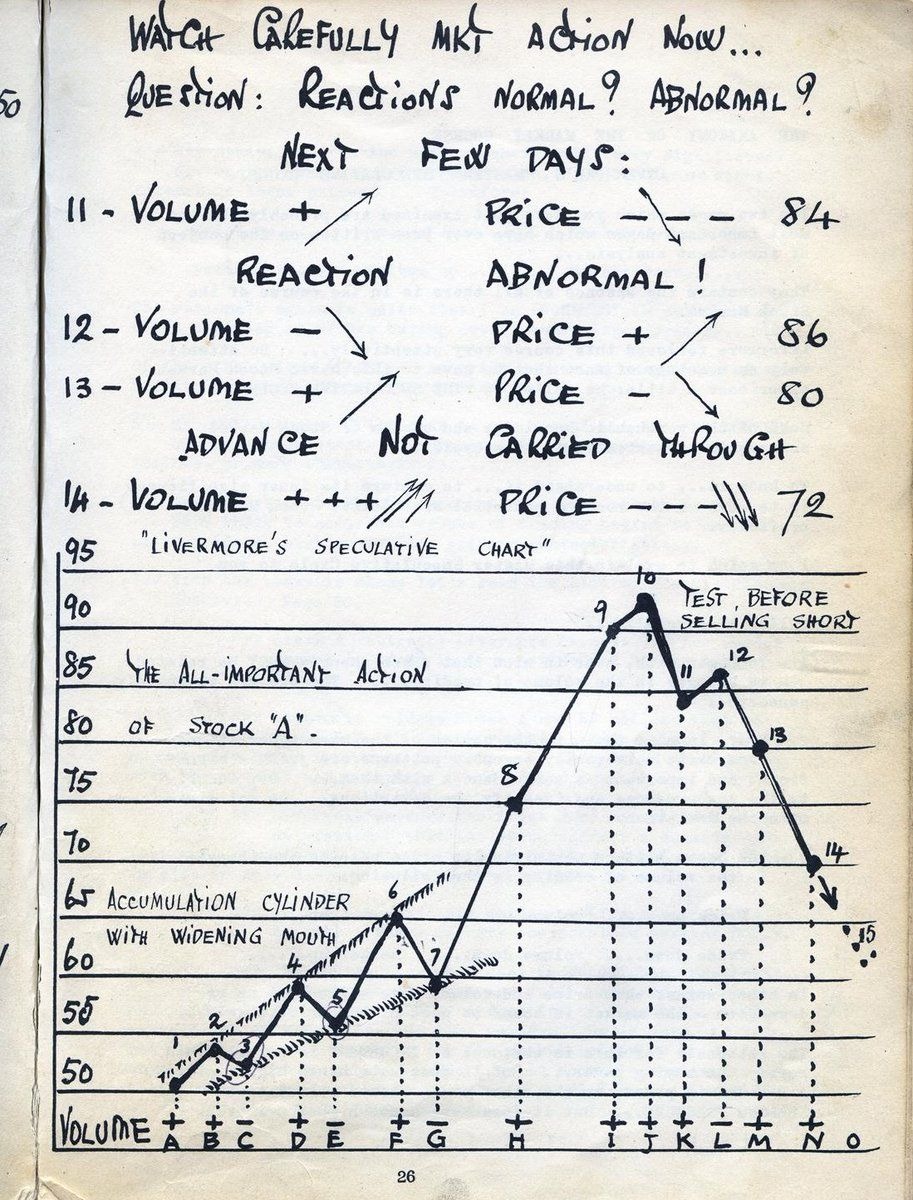 50
WATCH CAREFULLY MKT ACTION NOW...
QUESTION: REACTIONS NORMAL? ABNORMAL?
NEXT FEW DAYS:
11 - VOLUME + PRICE - 84
REACTION ABNORMAL!
12 - VOLUME - PRICE + 86
13 - VOLUME + PRICE - 80
ADVANCE NOT CARRIED THROUGH
14 - VOLUME +++ PRICE --- 72
95 "LIVERMORE'S SPECULATIVE CHART"
10
90 9 TEST BEFORE
SELLING SHORT
85 THE ALL-IMPORTANT ACTION 11 12
80 OF STOCK "A". 13
75 8
70 14
65 ACCUMULATION CYLINDER 6
WITH WIDENING MOUTH 15
60 4 7
55 2 5
50 1 3
VOLUME + + - + - + - + + + + - + +
A B C D E F G H I J K L M N O
26